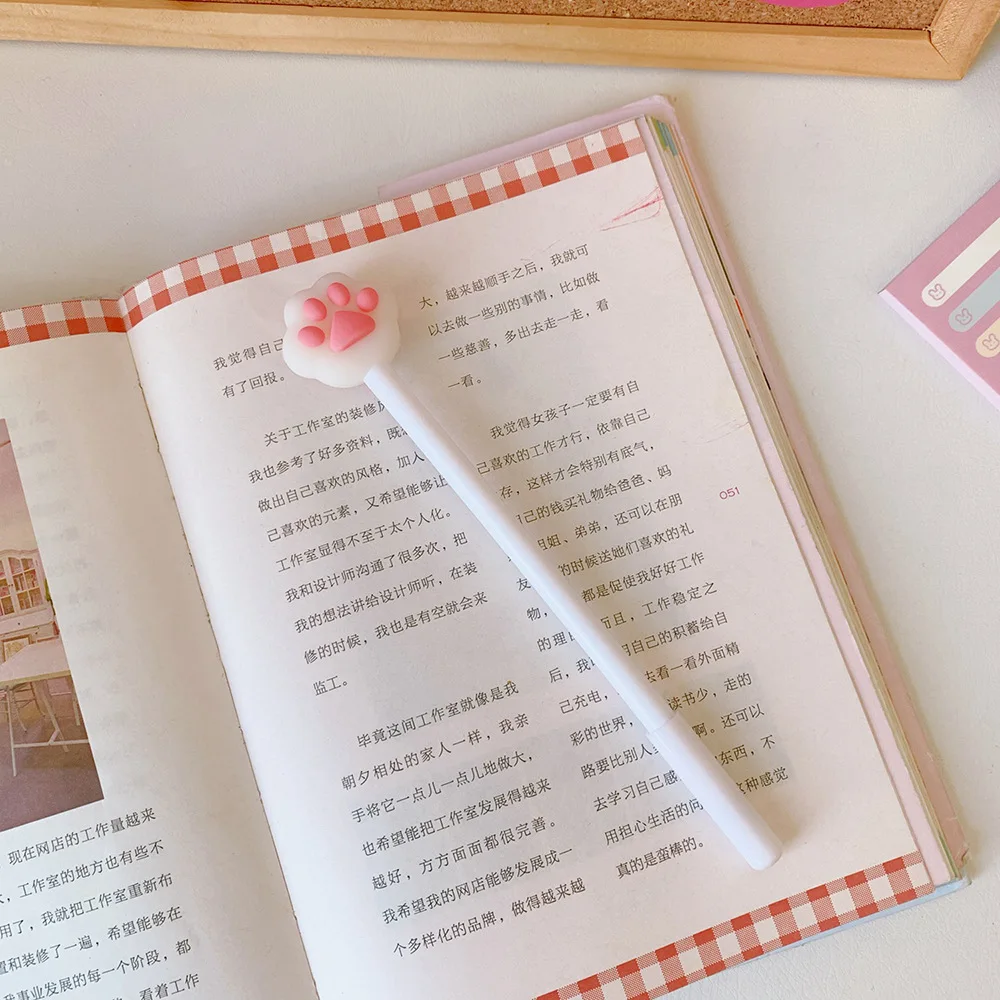 现在网店的工作量越来
工作室的地方也有些不
用了，我就把工作室重新布
置和装修了一遍，希望能够在
我事业发展的每一个阶段，都
看着工作
我觉得自己
有了回报。
关于工作室的装修风
我也参考了好多资料，既
做出自己喜欢的风格，加入
己喜欢的元素，又希望能够让
工作室显得不至于太个人化。
我和设计师沟通了很多次，把
我的想法讲给设计师听，在装
修的时候，我也是有空就会来
监工。
毕竟这间工作室就像是我
朝夕相处的家人一样，我亲
手将它一点儿一点儿地做大，
也希望能把工作室发展得越来
越好，方方面面都很完善。
我希望我的网店能够发展成一
个多样化的品牌，做得越来越
大，越来越顺手之后，我就可
以去做一些别的事情，比如做
一些慈善，多出去走一走，看
一看。
我觉得女孩子一定要有自
己喜欢的工作才行，依靠自己
存，这样才会特别有底气，
自己的钱买礼物给爸爸、妈
姐姐、弟弟，还可以在朋
友 的时候送她们喜欢的礼
物， 都是促使我好好工作
的理由 而且，工作稳定之
后，我 用自己的积蓄给自
己充电， 去看一看外面精
彩的世界， 读书少，走的
路要比别人 啊。还可以
去学习自己感 东西，不
用担心生活的问 这种感觉
真的是蛮棒的。
051